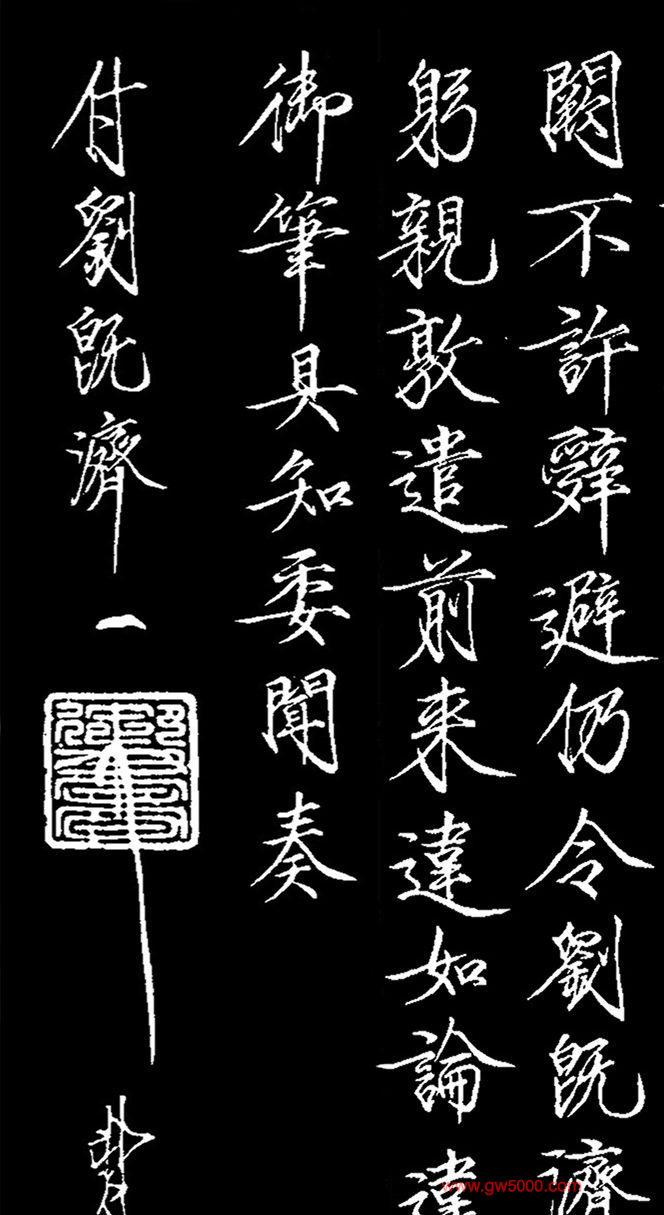 闕不許辤避仍令劉既濟
躬親敦遣前来違如論違
御筆具知委聞奏
付劉既濟
www.gw5000.com